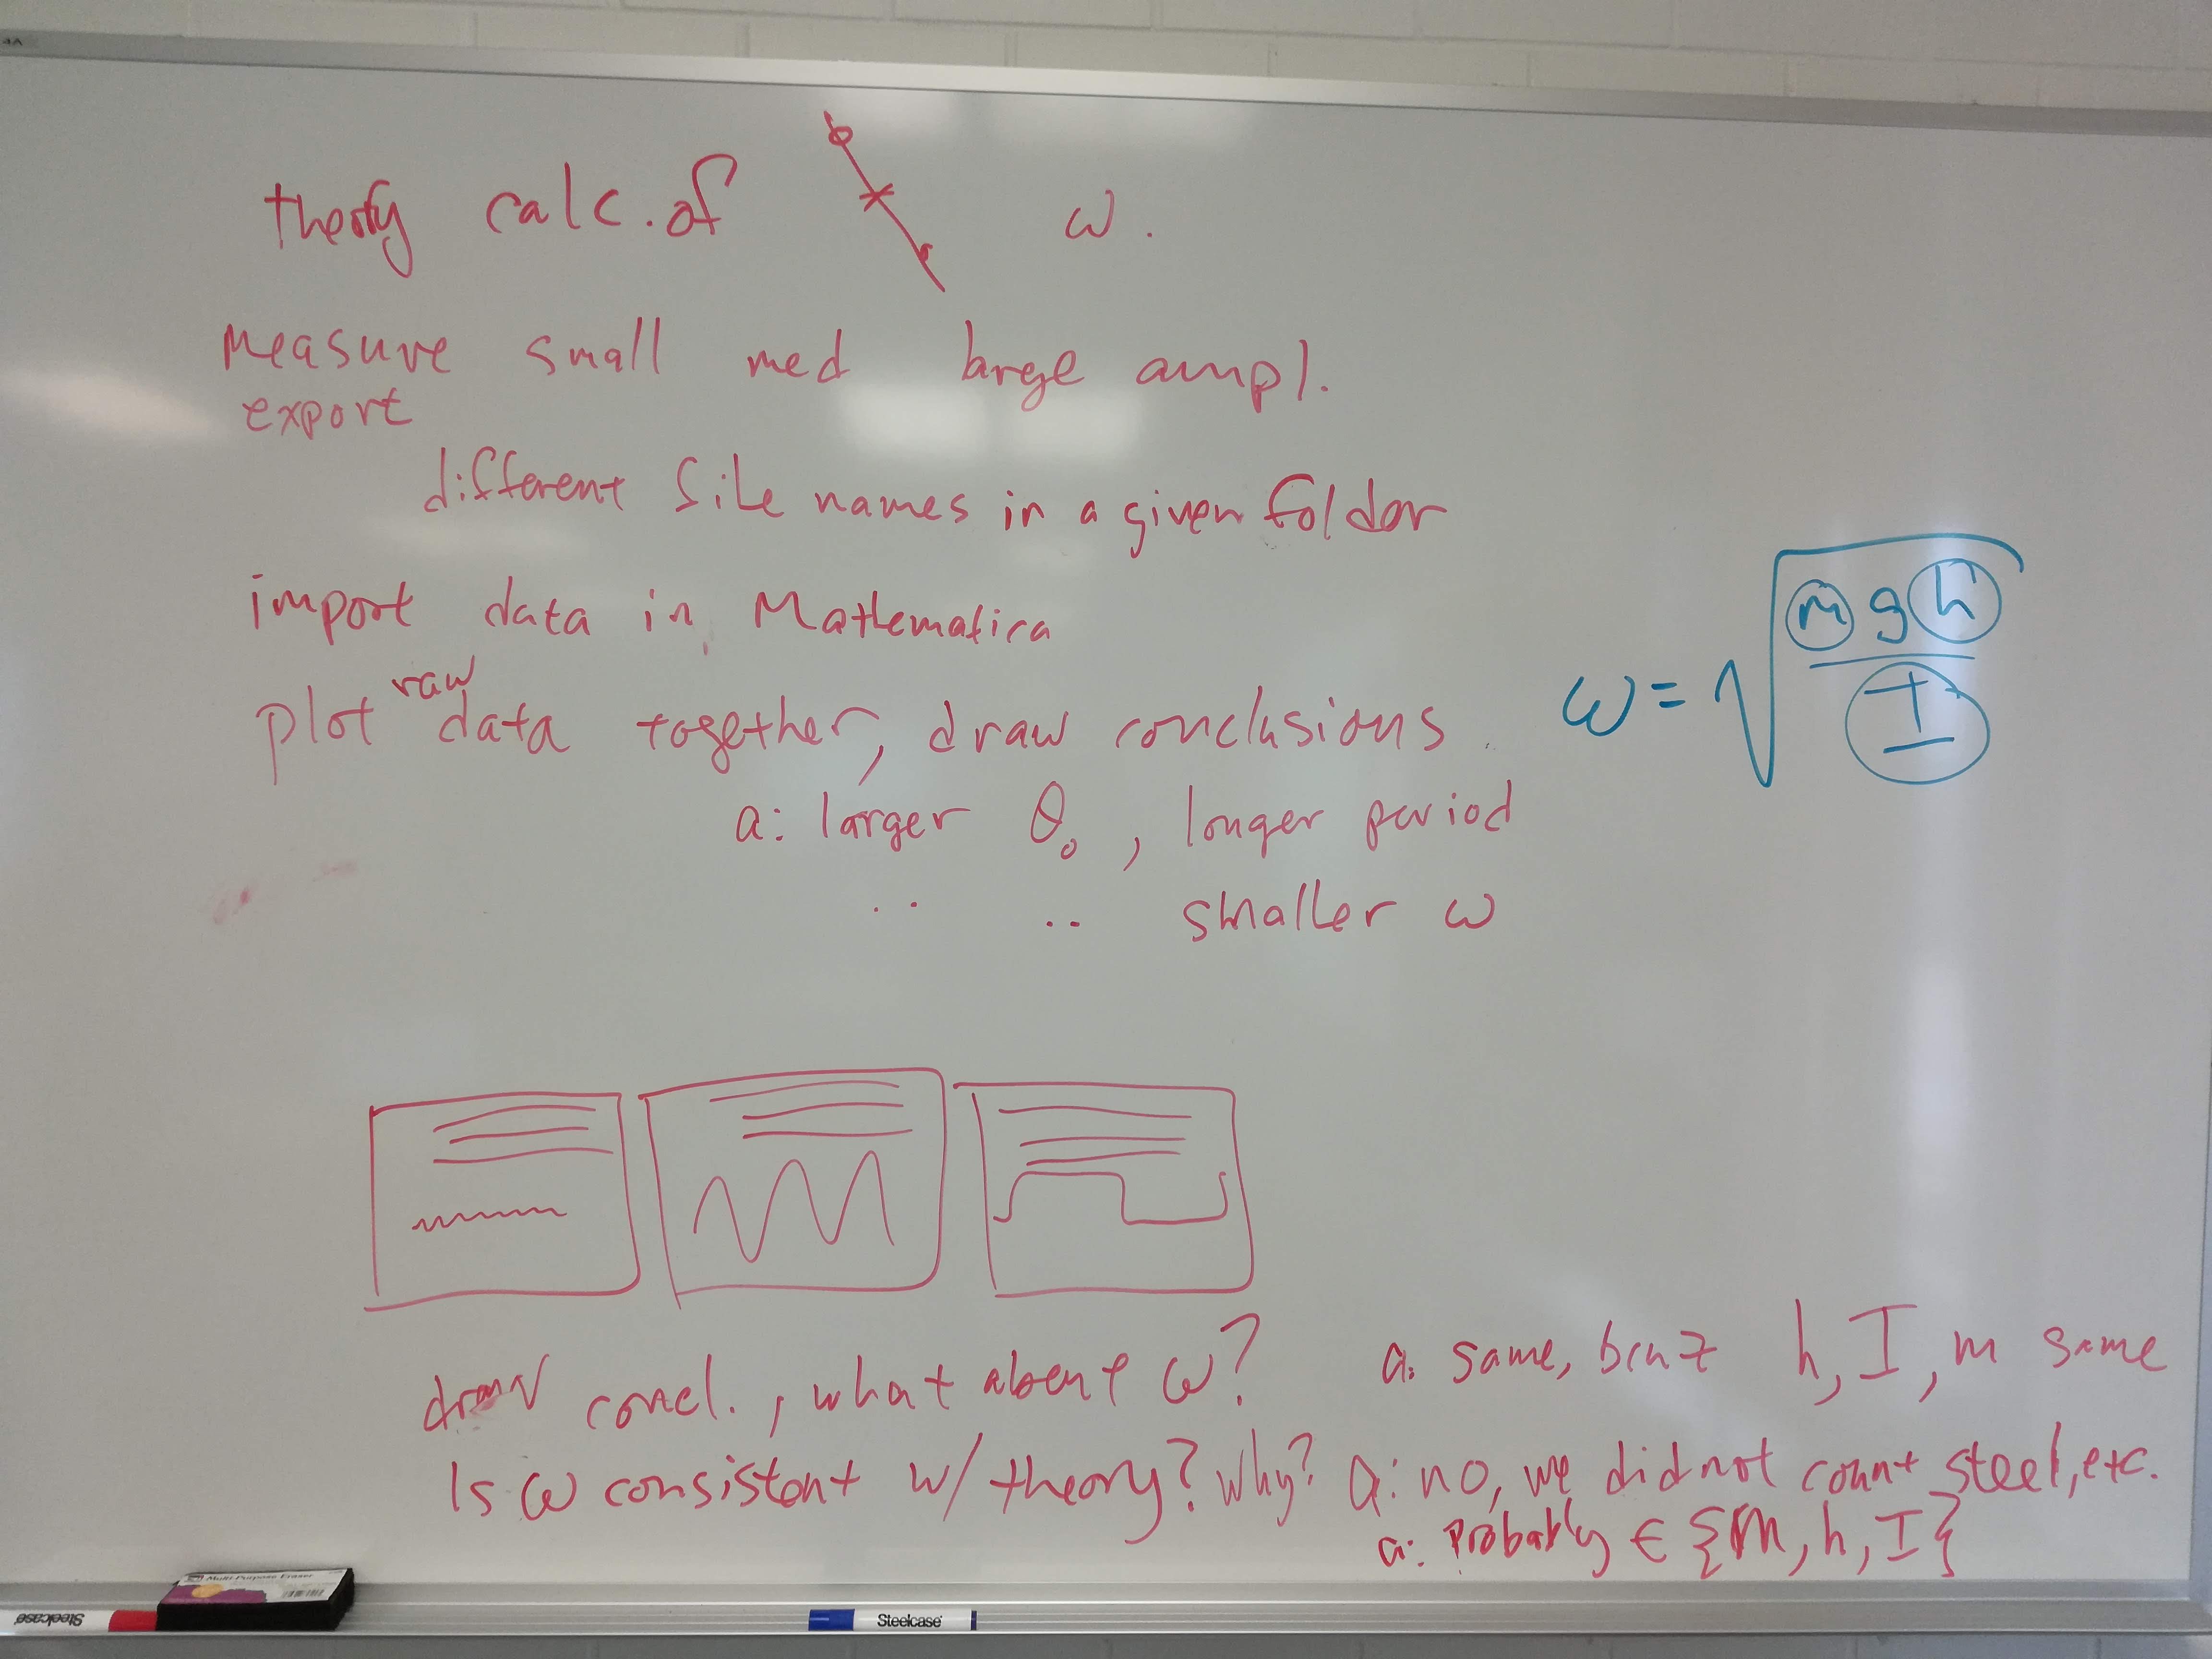 4A
theory calc. of ω.
measure small med large ampl.
export
different file names in a given folder
import data in Mathematica
plot raw data together, draw conclusions.
a: larger θ₀, longer period
.. .. smaller ω
ω = √(mgh/I)
draw concl., what about ω? a: same, bcuz h, I, m same
Is ω consistent w/ theory? why? a: no, we did not count steel, etc.
a: Probably ∈ {m, h, I}
Multi-Purpose Eraser
Steelcase
Steelcase